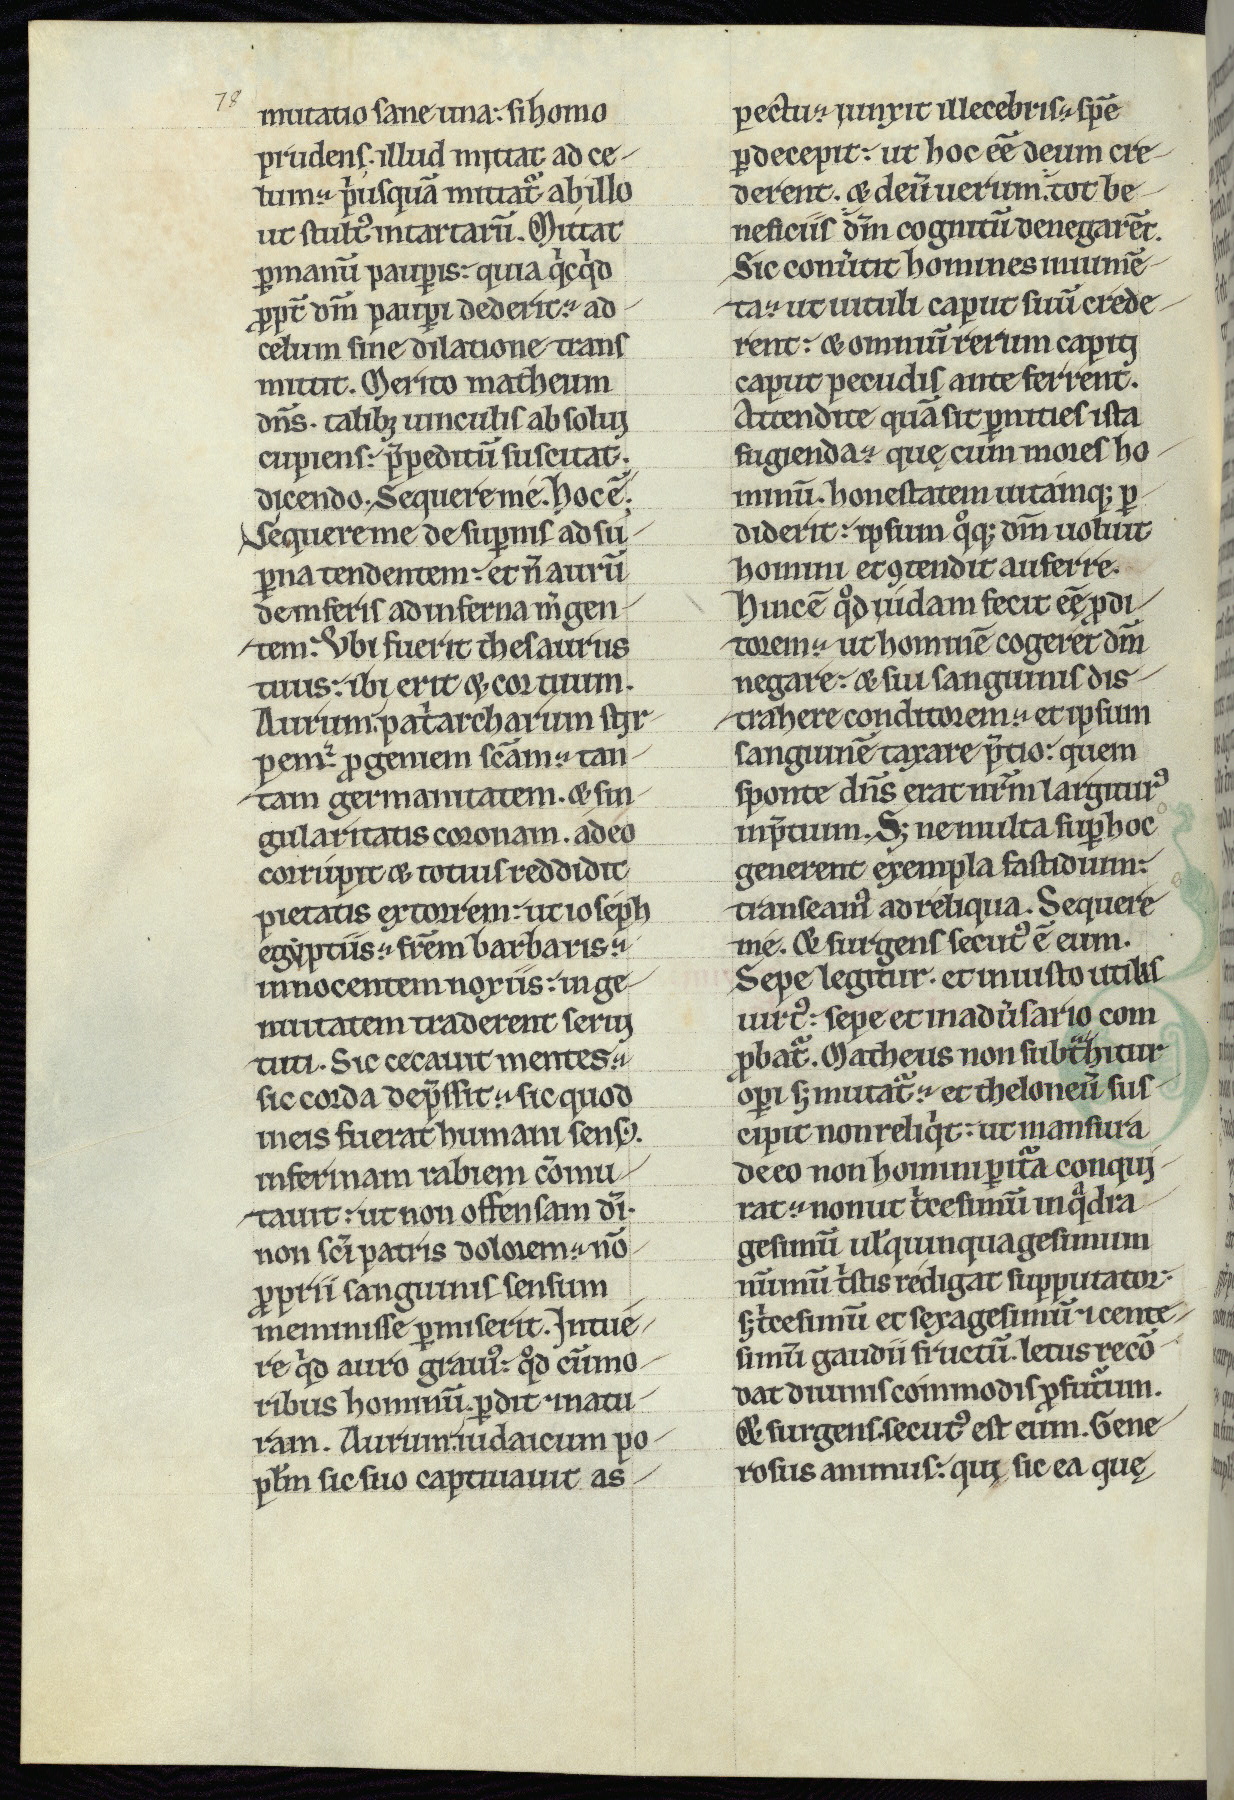 78
mutatio sane una: si homo
prudens. illud mittat ad ce-
lum. p̾usquā mittat᷑ ab illo
ut stultꝰ in tartarū. Mittat
ꝑ manū paupis: quia qͥcqͥd
ꝓpt̄ dm̄ pauꝑi dederit. ad
celum sine dilatione trans
mittit. Merito matheum
dn̄s. talibꝫ uinculis absolui
cupiens: p̄peditū suscitat.
dicendo. Sequere me. hoc ē.
Sequere me de suꝑnis ad su-
ꝑna tendentem: et n̄ aurū
de inferis ad inferna m̄gen-
tem: Vbi fuerit thesaurus
tuus: ibi erit & cor tuum.
Aurum. pat̾archarum stir
pem. ꝓgeniem scām. tan-
tam germanitatem. & sin-
gularitatis coronam. adeo
corrupit & totius reddidit
pietatis extorrem: ut ioseph
egyptiis. fr̄em barbaris.
innocentem noxiis: inge-
nuitatem traderent serui
tuti. Sic cecauit mentes.
sic corda dep̄ssit. sic quod
in eis fuerat humani sensꝰ.
in ferinam rabiem cōmu-
tauit: ut non offensam dī.
non scī patris dolorem. nō
ꝓprii sanguinis sensum
meminisse ꝑmiserit. Intue-
re qͥd auro grauiꝰ: qͦd cū mo-
ribus hominū. ꝑdit natu-
ram. Aurum. iudaicum po-
pl̄m sic suo captiuauit as-
pectu. iunxit illecebris. spē
ꝑdecepit: ut hoc eē deum cre-
derent. & deū uerum. tot be-
neficiis dm̄ cognitū denegarēt.
Sic conu̾tit homines in iumē-
ta. ut uituli caput suū crede-
rent: & omniū rerum capiti
caput pecudis ante ferrent.
Attendite quā sit ꝑnities ista
fugienda. quę cum mores ho-
minū. honestatem uitamqꝫ ꝑ-
diderit: ipsum qͦqꝫ dm̄ uoluit
homini et ꝯtendit auferre.
Hinc ē qͦd iudam fecit eē ꝓdi-
torem. ut hominē cogeret dm̄
negare: & sui sanguinis dis-
trahere conditorem. et ipsum
sanguinē taxare p̄tio: quem
sponte dn̄s erat nr̄m largiturꝰ
in p̄tium. Sꝫ ne multa suꝑ hoc
generent exempla fastidium:
transeamꝰ ad reliqua. Sequere
me. & surgens secutꝰ ē eum.
Sepe legitur. et in iusto utilis
uirtꝰ: sepe et in adu̾sario com
ꝓbat᷑. Matheus non subtᷓhitur
oꝑi sꝫ mutat᷑. et theloneū sus-
cipit non reliqͥt: ut mansura
de eo non homini ꝑit᷑a conqui-
rat. non ut t̾cesimū in qᷓdra-
gesimū ul̄ quinquagesimum
nūmū t̾stis redigat supputator.
sꝫ t̾cesimū et sexagesimū i cente-
simū gaudii fructū. letus recō-
dat diuinis commodis ꝓfutᷣum.
& surgens. secutꝰ est eum. Gene-
rosus animus: qui sic ea quę